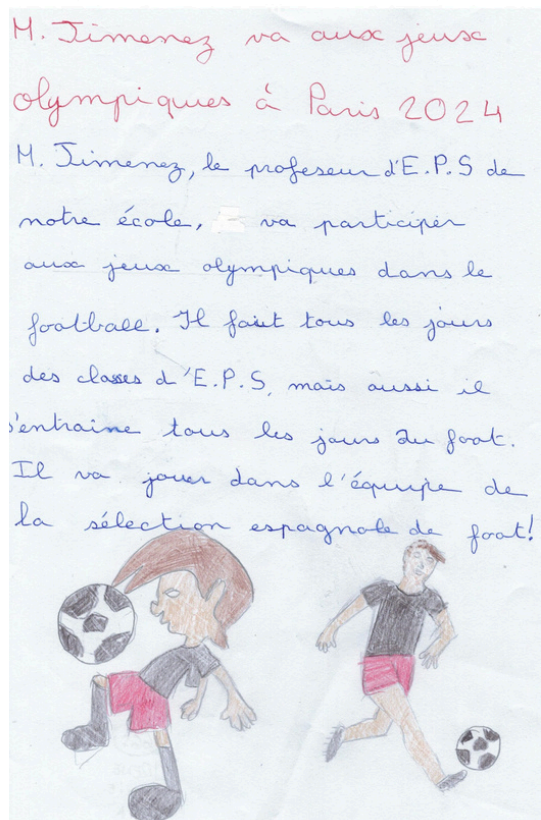 M. Jimenez va aux jeux
olympiques à Paris 2024
M. Jimenez, le profeseur d'E.P.S de
notre école, va participer
aux jeux olympiques dans le
football. Il fait tous les jours
des classes d'E.P.S, mais aussi il
s'entraîne tous les jours au foot.
Il va jouer dans l'équipe de
la sélection espagnole de foot!